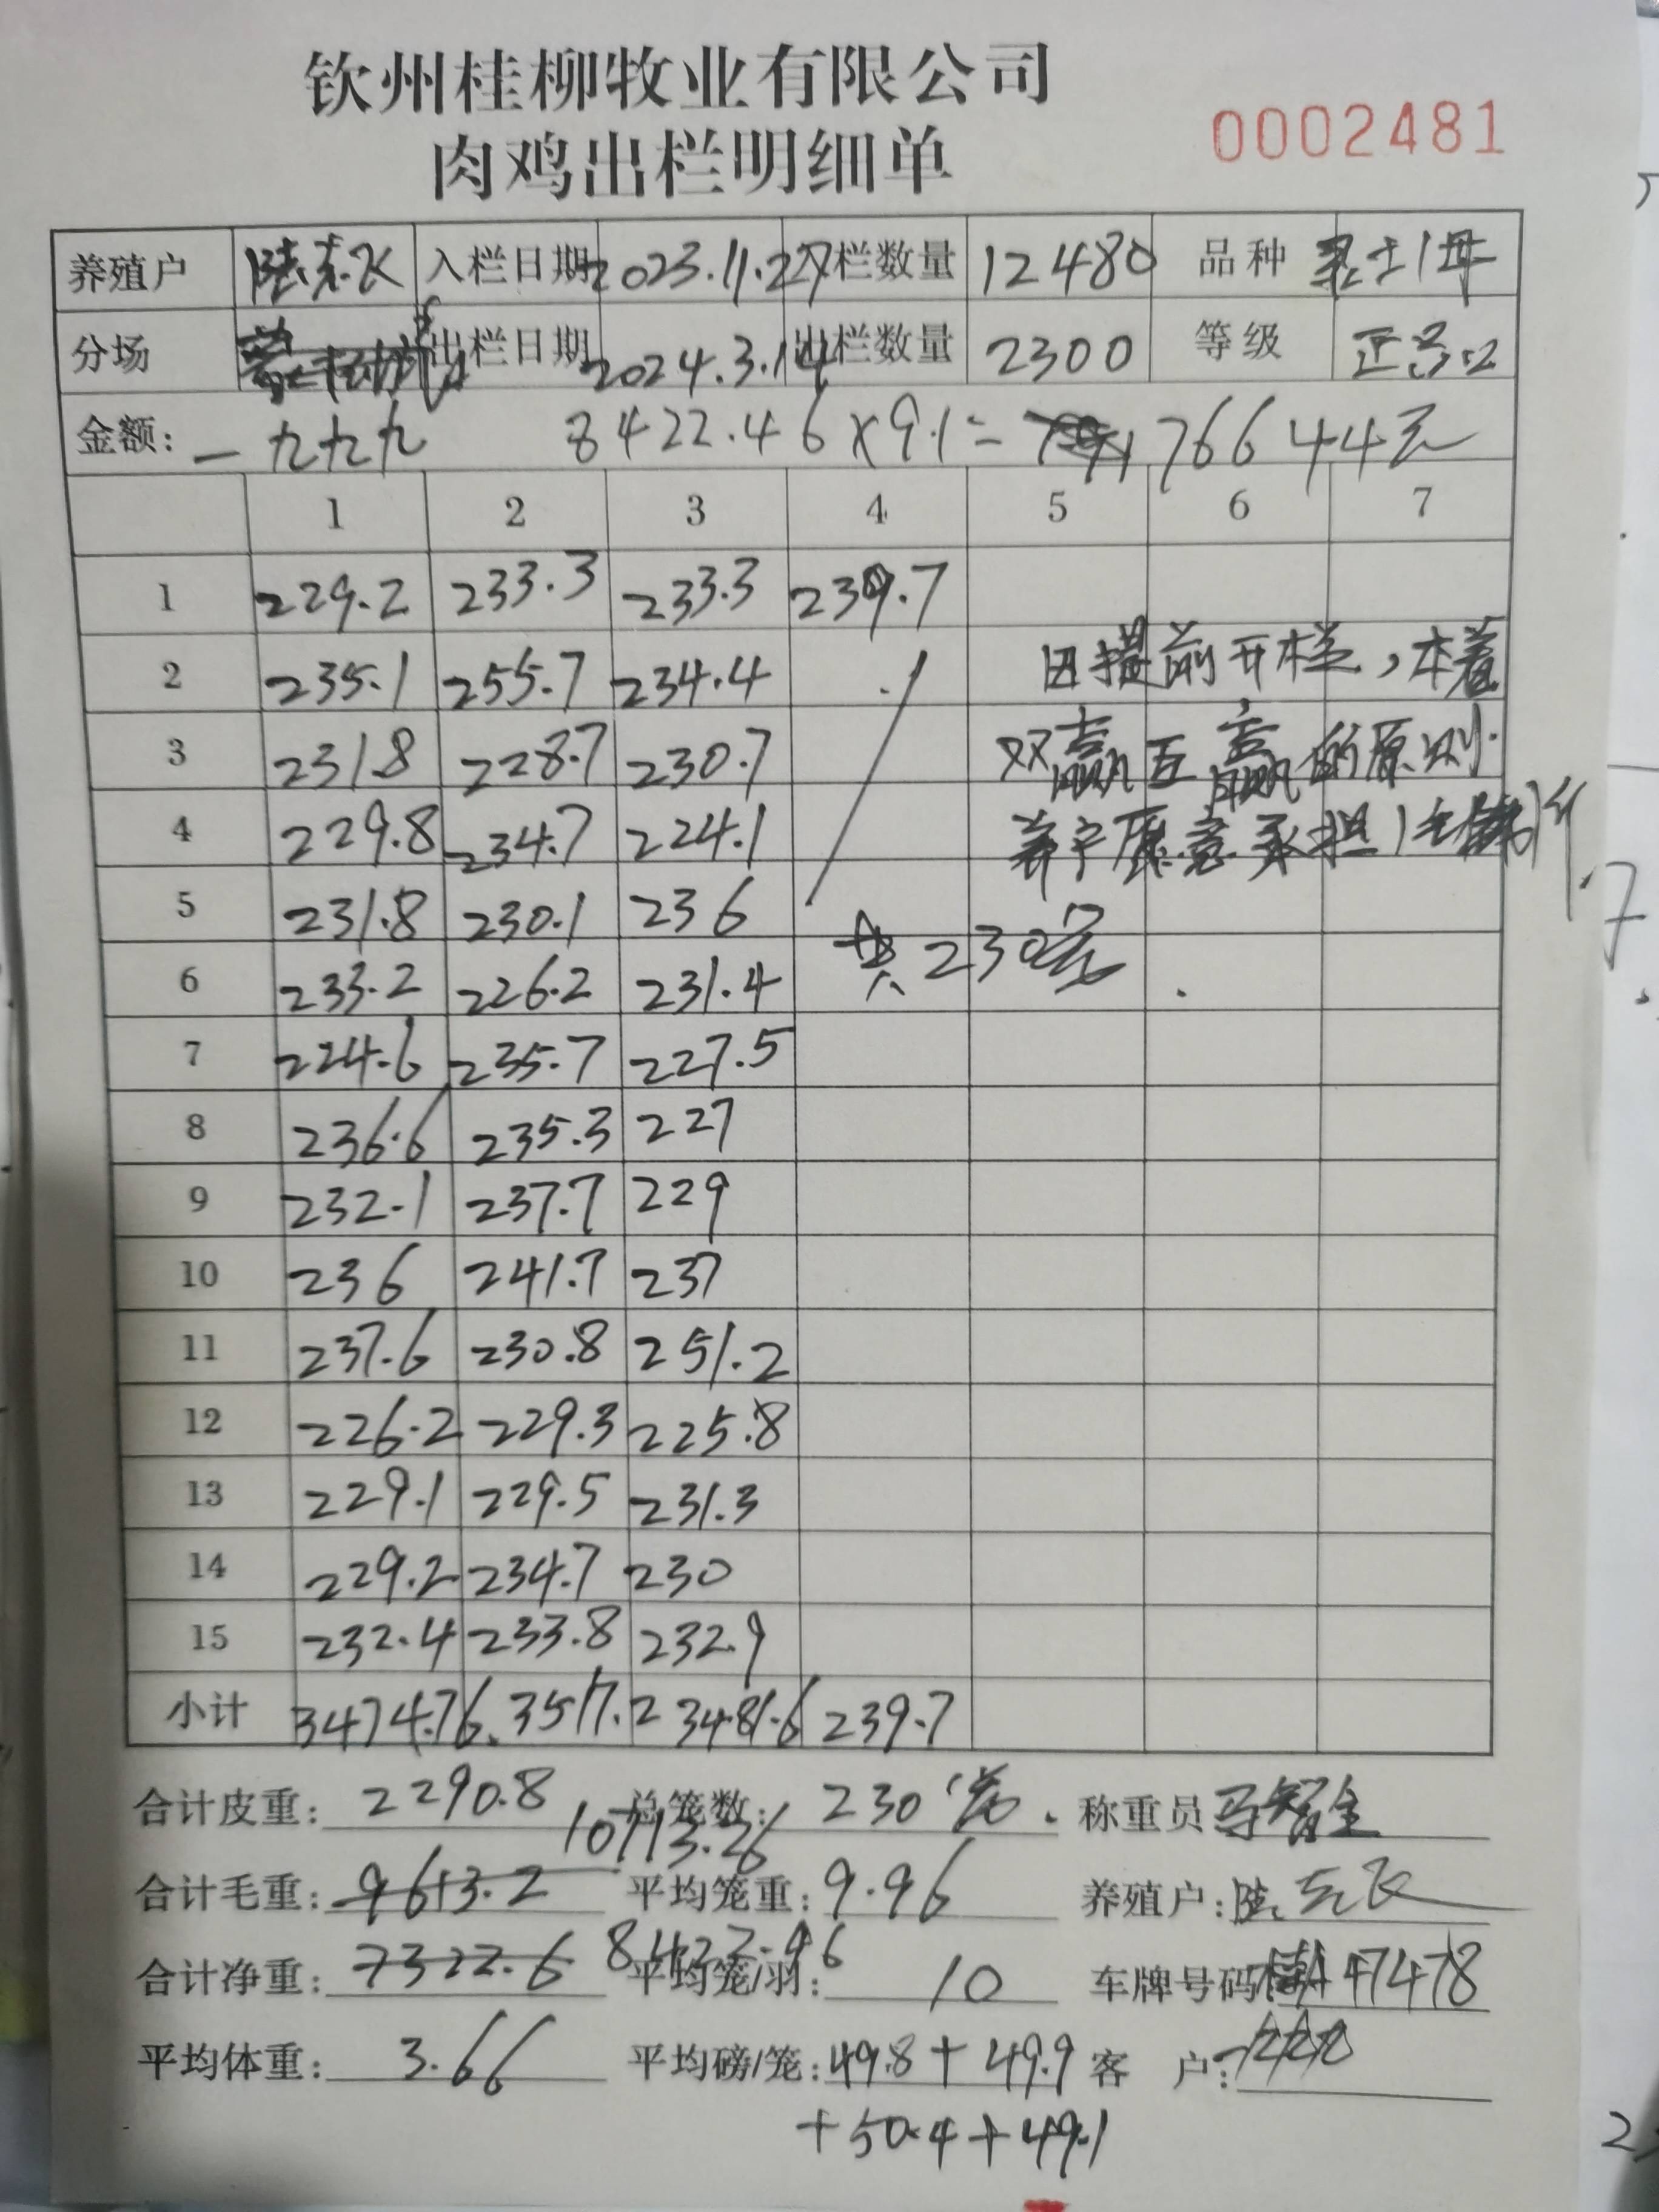 钦州桂柳牧业有限公司
肉鸡出栏明细单 0002481
养殖户 陆克飞 入栏日期 2023.11.27 入栏数量 12480 品种 土1母
分场 出栏日期 2024.3.14 出栏数量 2300 等级 正号2
金额: 一九九九 8422.46×9.1= 76644元
1 2 3 4 5 6 7
1 229.2 233.3 233.3 239.7
2 235.1 255.7 234.4
因提前开栏,本着
3 231.8 228.7 230.7
双赢互赢的原则
4 229.8 234.7 224.1
养户愿意承担1
5 231.8 230.1 236
共230笼
6 233.2 226.2 231.4
7 224.6 235.7 227.5
8 236.6 235.3 227
9 232.1 237.7 229
10 236 241.7 237
11 237.6 230.8 251.2
12 226.2 229.3 225.8
13 229.1 229.5 231.3
14 229.2 234.7 230
15 232.4 233.8 232.9
小计 3474.76 3517.2 3481.6 239.7
合计皮重: 2290.8 总笼数: 230笼. 称重员 马智全
10713.26
合计毛重: 9613.2 平均笼重: 9.96 养殖户: 陆克飞
合计净重: 7322.6 8422.46 平均笼/羽: 10 车牌号码: 47478
平均体重: 3.66 平均磅/笼: 49.8+49.9 客 户:
+50.4+49.1